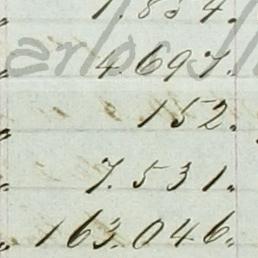 1.834.
4.697.
152.
7.531.
163.046.